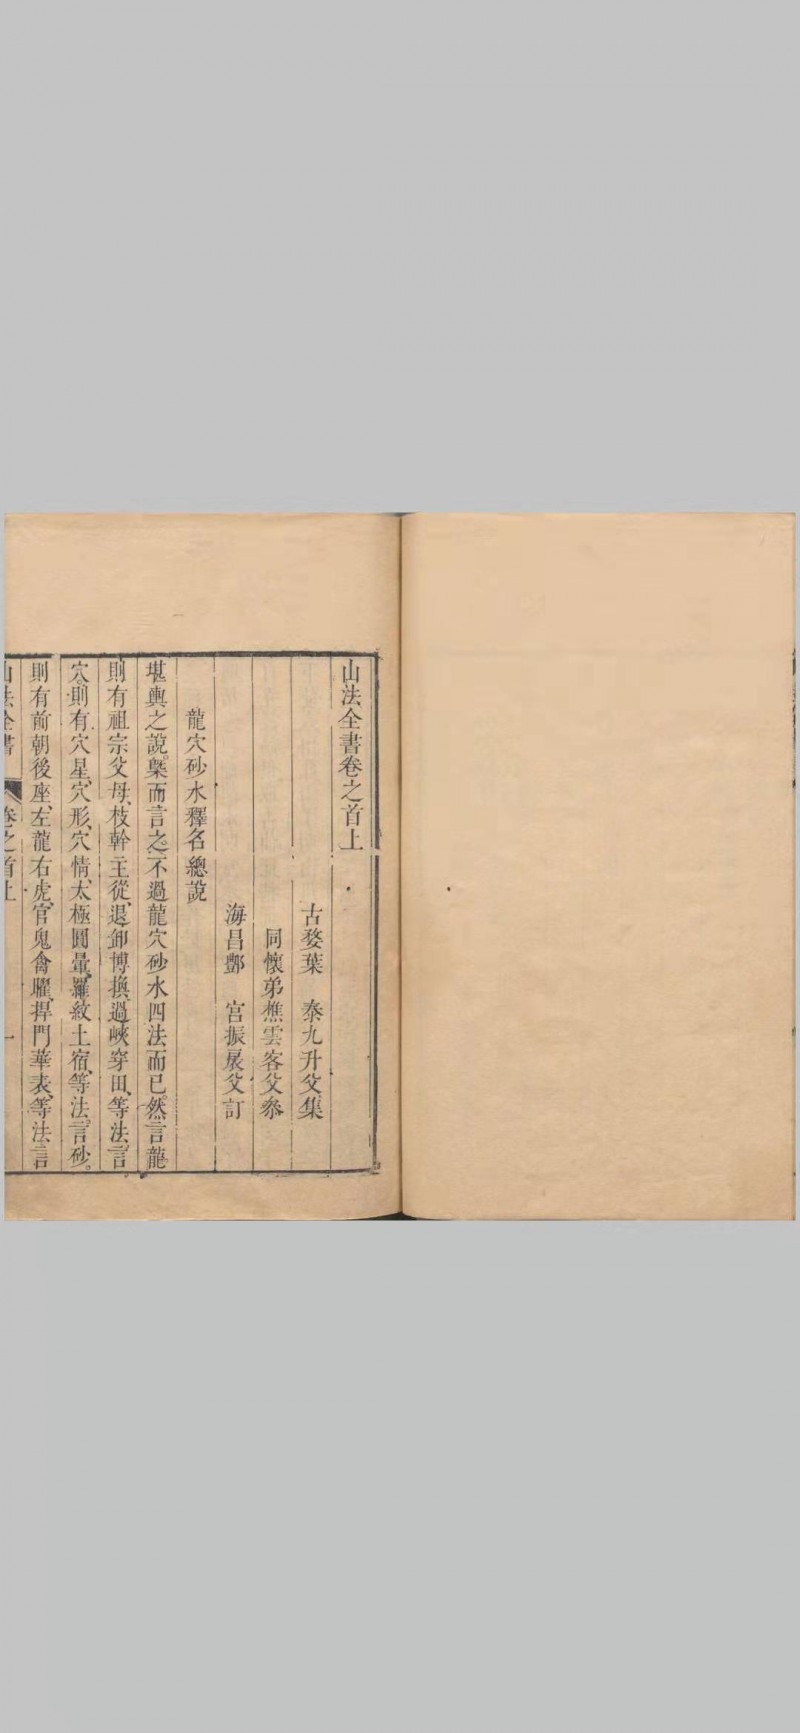 山法全書卷之首上
古婺葉　泰九升父集
同懷弟樵雲客父叅
海昌鄧　宮振宸父訂
龍穴砂水釋名總說
堪輿之說。槩而言之。不過龍穴砂水四法而已。然言龍。
則有祖宗父母、枝幹主從、退卸博換、過峽穿田、等法。言
穴。則有穴星、穴形、穴情、太極圓暈、羅紋土宿、等法。言砂。
則有前朝後座、左龍右虎、官鬼禽曜、捍門華表、等法。言
山法全書　卷之首上　一